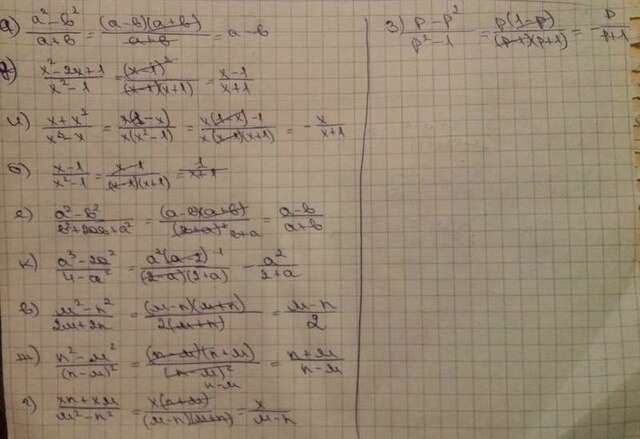 а) (a²-b²)/(a+b) = ((a-b)(a+b))/(a+b) = a-b
д) (x²-2x+1)/(x²-1) = (x-1)²/((x-1)(x+1)) = (x-1)/(x+1)
и) (x+x²)/(x³-x) = /(x(x²-1)) = /(x(x-1)(x+1)) = -x/(x+1)
б) (x-1)/(x²-1) = (x-1)/((x-1)(x+1)) = 1/(x+1)
е) (a²-b²)/(b²+2ab+a²) = ((a-b)(a+b))/(b+a)² b+a = (a-b)/(a+b)
к) (a³-2a²)/(4-a²) = (a²(a-2)-1)/((2-a)(2+a)) - a²/(2+a)
в) (м²-n²)/(2м+2n) = ((м-n)(м+n))/(2(м+n)) = (м-n)/2
ж) (n²-м²)/(n-м)² = ((n-м)(n+м))/(n-м)² n-м = (n+м)/(n-м)
г) (xn+xм)/(м²-n²) = /((м-n)(м+n)) = x/(м-n)
з) (p-p²)/(p²-1) = (p(1-p))/((p-1)(p+1)) = -p/(p+1)